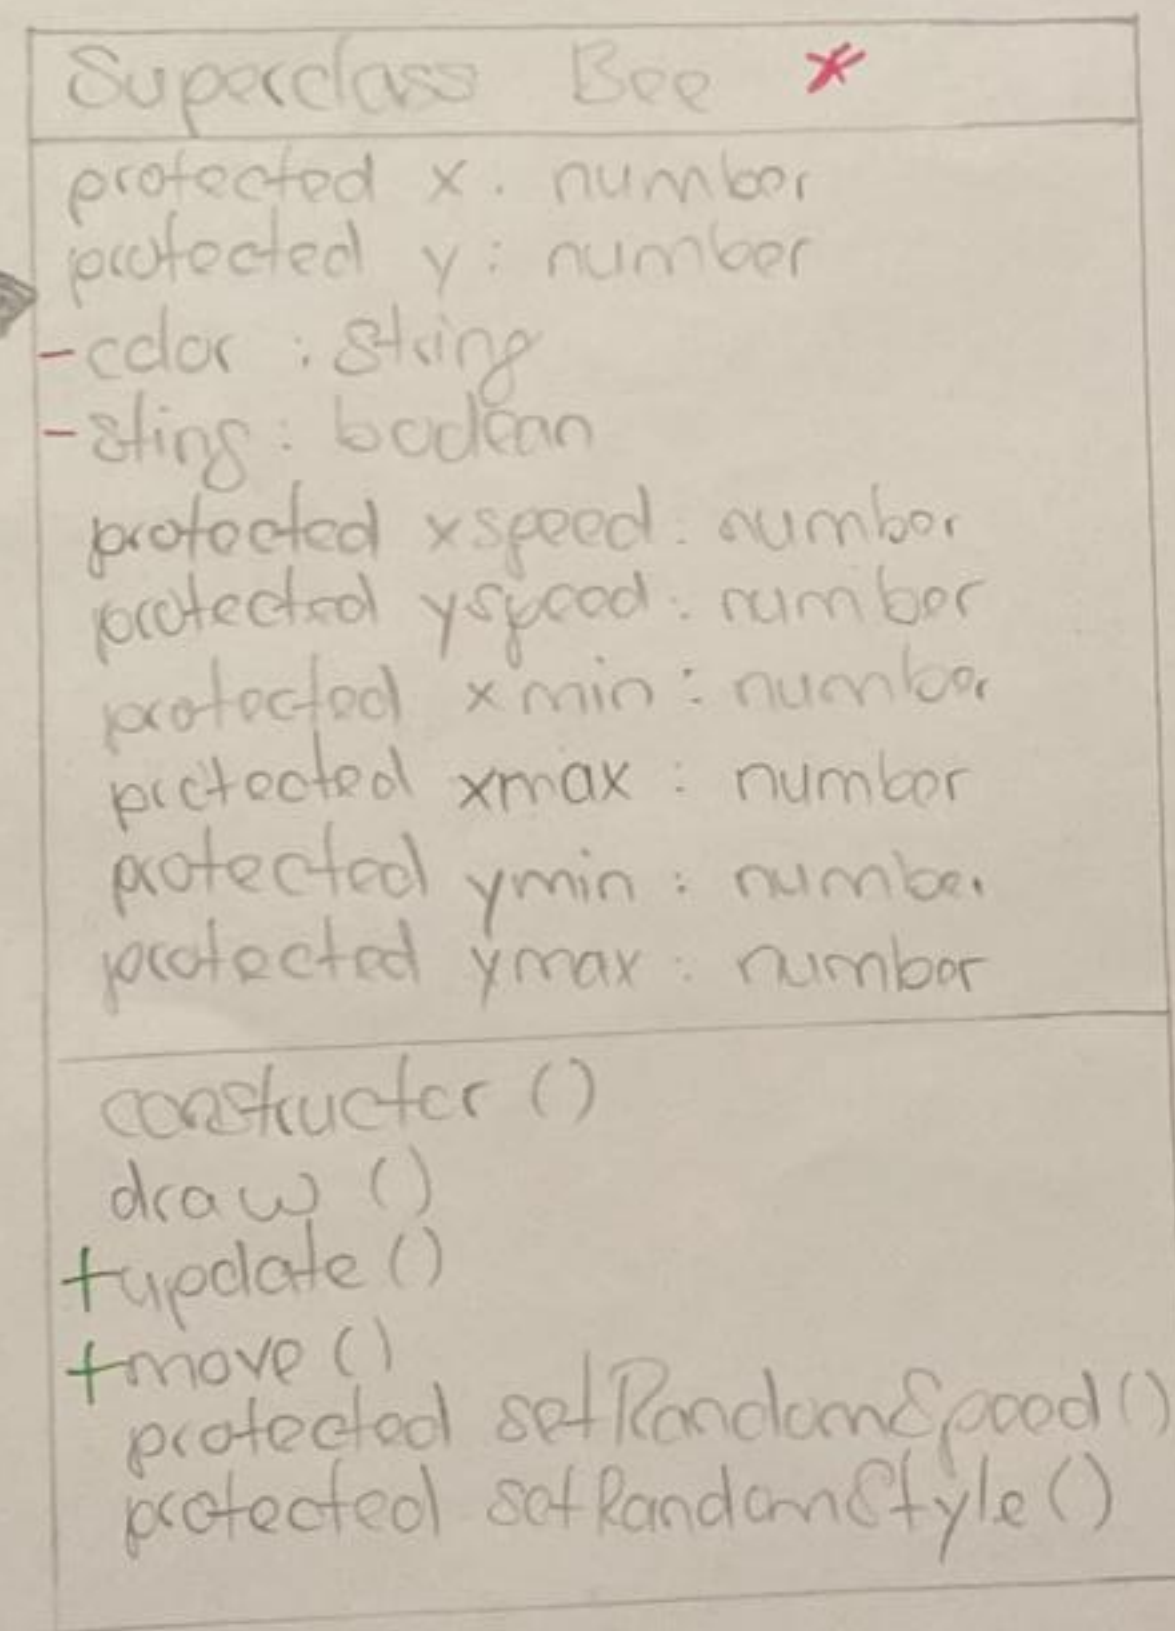 Superclass Bee *
protected x : number
protected y : number
- color : string
- sting : boolean
protected xspeed : number
protected yspeed : number
protected xmin : number
protected xmax : number
protected ymin : number
protected ymax : number
constructor ()
draw ()
+ update ()
+ move ()
protected setRandomSpeed ()
protected setRandomStyle ()